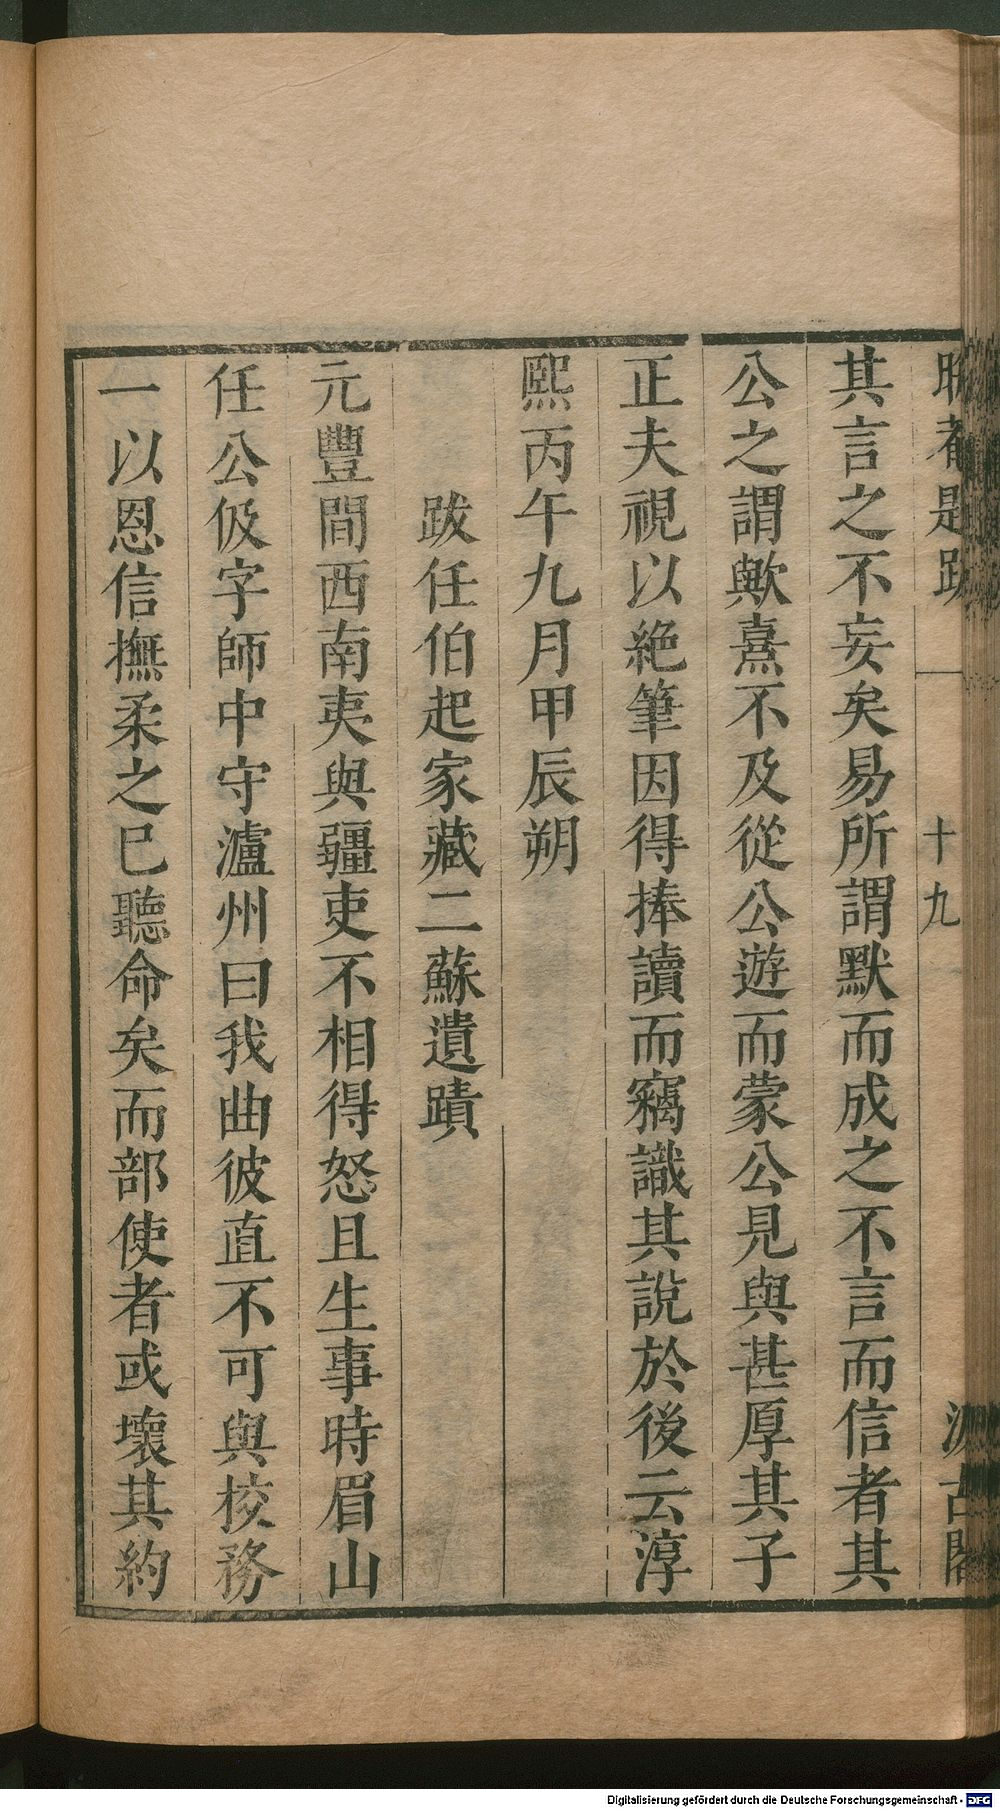 晦菴題跋　十九　汲古閣
其言之不妄矣易所謂默而成之不言而信者其
公之謂歟熹不及從公遊而蒙公見與甚厚其子
正夫視以絶筆因得捧讀而竊識其說於後云淳
熙丙午九月甲辰朔
跋任伯起家藏二蘇遺蹟
元豐間西南夷與疆吏不相得怒且生事時眉山
任公伋字師中守瀘州曰我曲彼直不可與校務
一以恩信撫柔之已聽命矣而部使者或壞其約
Digitalisierung gefördert durch die Deutsche Forschungsgemeinschaft - DFG